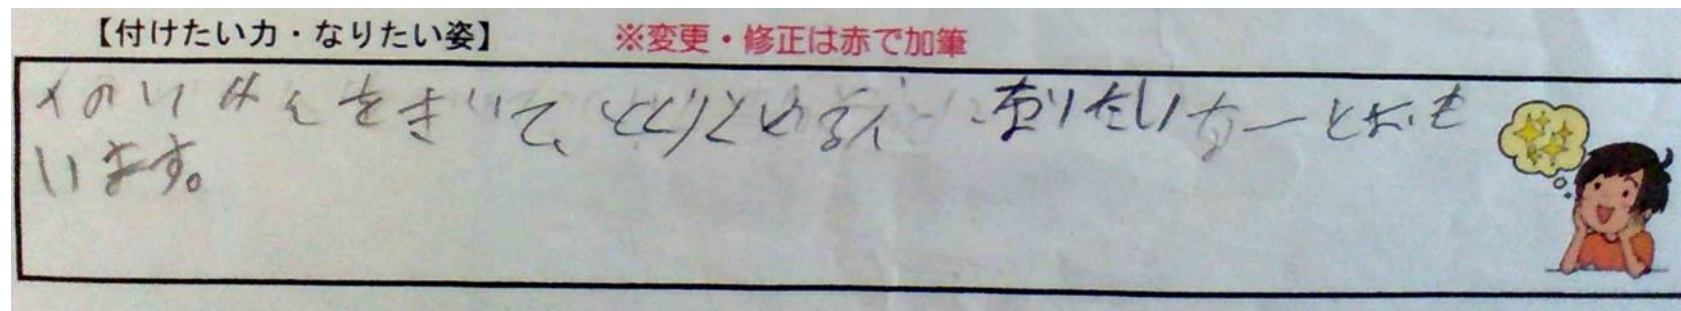 【付けたい力・なりたい姿】 ※変更・修正は赤で加筆
人のいけんをきいて、とくりとめるんになりたいなーとおも
います。